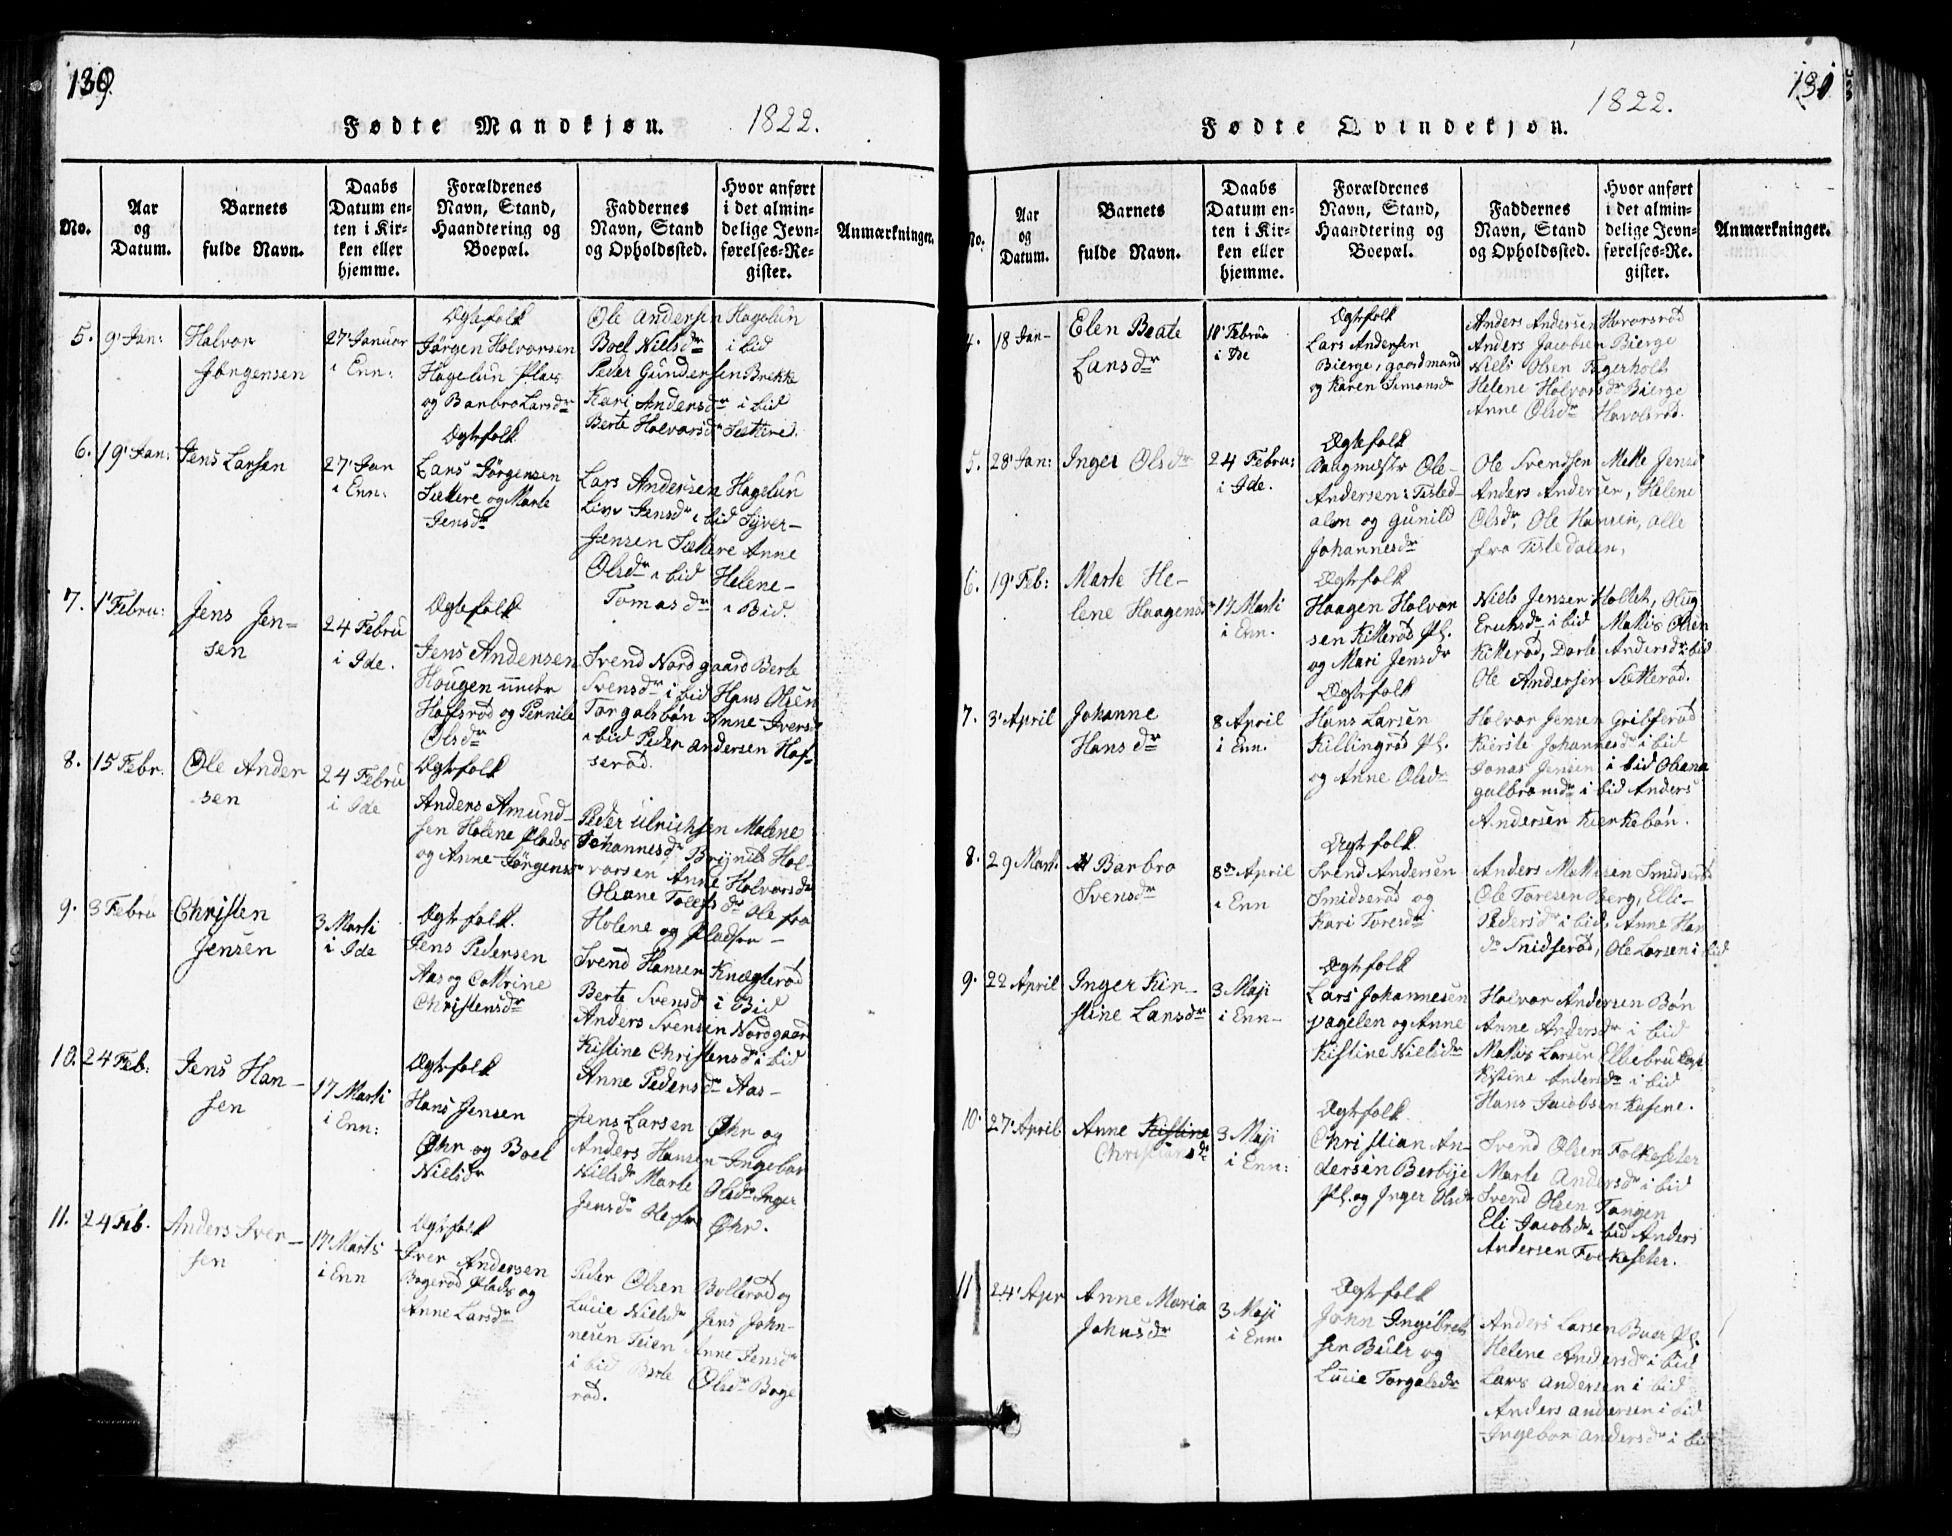 139.
Fødte Mandkjøn.
1822.
No.
Aar
og
Datum.
Barnets
fulde Navn.
Daabs
Datum en-
ten i Kir-
ken eller
hjemme.
Forældrenes
Navn, Stand,
Haandtering og
Boepæl.
Faddernes
Navn, Stand
og Opholdssted.
Hvor anført
i det almin-
delige Jevn-
førelses-Re-
gister.
Anmærkninger.
5.
9' Jan:
Halvor
Jörgensen
27' Januar
i Enn:
Ægtefolk
Jörgen Holvorsen
Hagelun Plads
og Barbro Larsdr
Ole Andersen Hagelun
Boel Nielsdr i bid
Peder Gundersen Brekke
Kari Andersdr i bid
Berte Holvorsdr Sættere.
6.
19' Jan:
Jens Larsen
27' Jan
i Enn:
Ægtefolk
Lars Jörgensen
Sættere og Marte
Jensdr
Lars Andersen Hagelun
Live Jensdr i bid Syver-
Jensen Sættere Anne
Olsdr i bid Helene-
Tomasdr i Bid.
7.
1' Febru:
Jens Jen-
sen
24 Febru
i Ide.
Ægtefolk
Jens Andersen
Hougen under
Hafsröd og Pernile
Olsdr
Svend Nordgaard Berte
Svensdr i bid Hans Olsen
Torgalsbön Anne Iversdr
i bid Peder Andersen Haf-
seröd.
8.
15 Febr.
Ole Ander
sen
24 Febru
i Ide
Ægtefolk
Anders Amund-
sen Holene Plads
og Anne Jörgensdr
Peder Ulrichsen Malene
Johannesdr Brynild Hol-
vorsen Anne Holvorsdr
Oleane Tolefsdr Ole fra
Holene og Pladsen-
9.
3 Febru
Christen
Jensen
3 Marti
i Ide
Ægtefolk.
Jens Pedersen
Aas og Cattrine
Christensdr
Svend Hansen Knægteröd
Berte Svensdr i Bid
Anders Svensen Nordgaard
Kistine Christensdr i bid
Anne Pedersdr Aas-
10.
24 Feb:
Jens Han-
sen
17 Marti
i Enn:
Ægtefolk
Hans Jensen
Øhr og Boel
Nielsdr
Jens Larsen Øhr og
Anders Hansen Ingebor
Nielsdr Marte Olsdr Inger
Jensdr Ole fra Øhr.
11.
24 Feb.
Anders Iver-
sen
17' Marts
i Enn
Ægtefolk
Iver Andersen
Bageröd Plads og
Anne Larsdr
Peder Olsen Bolleröd og
Lucie Nielsdr Jens John-
nesen Teien Anne Jensdr
i bid Berte Olsdr Boge
röd.
131
Fødte Qvindekjøn.
1822.
No.
Aar
og
Datum.
Barnets
fulde Navn.
Daabs
Datum en-
ten i Kir-
ken eller
hjemme.
Forældrenes
Navn, Stand,
Haandtering og
Boepæl.
Faddernes
Navn, Stand
og Opholdssted.
Hvor anført
i det almin-
delige Jevn-
førelses-Re-
gister.
Anmærkninger.
4.
18 Jan-
Elen Beate
Larsdr
10' Februa
i Ide
Ægtefolk
Lars Andersen
Bierge, gaardmand
og Karen Simonsdr
Anders Andersen Hovorsröd
Anders Jacobsen Bierge
Niels Olsen Tigerholt
Helene Holvorsdr Bierge
Anne Olsdr Hovolsröd.
5.
28' Jan:
Inger Olsdr
24 Febru:
i Ide.
Ægtefolk
Ole-
Andersen: Tisted-
alen og Gunild
Johannesdr
Ole Svendsen Mette Jensd
Anders Andersen, Helene
Olsdr, Ole Hansen, alle
fra Tistedalen,
6.
19' Feb:
Marte He-
lene Haagensdr
17 Marti
i Enn.
Ægtefolk
Haagen Holvor
sen Kitteröd Pl.
og Mari Jensdr
Niels Jensen Hollet, Olug
Ericksdr i bid Mattis Olsen
Kitteröd, Dorte Andersdr i bid
Ole Andersen Sætteröd.
7.
3' April
Johanne
Hansdr
8 April
i Enn.
Ægtefolk
Hans Larsen
Killingröd Pl.
og Anne Olsdr
Halvor Jensen Gribseröd
Kierste Johannesdr i bid
Jonas Jensen i bid Oleana
Gulbransdr i bid Anders
Andersen Kierkebön.
8.
29 Mart:
Barbro
Svensdr
8de April
i Enn
Ægtefolk.
Svend Andersen
Smidseröd og
Kari Toresdr
Anders Mattisen Smidseröd
Ole Toresen Berg, Elli-
Pedersdr i bid, Anne Han
dr Smidseröd, Ole Larsen i bid
9.
22 April
Inger Kir-
stine Larsdr
3 Maji
i Enn-
Ægtefolk
Lars Johannesen
Vagelen og Anne
Kistine Nielsdr
Halvor Andersen Bön
Anne Andersdr i bid
Mattis Larsen Ellebru
Kistine Andersdr i bid
Hans Jacobsen Kasene.
10.
27' April
Anne Kistine
Christiansdr
3 Maji
i Enn:
Ægtefolk
Christian An-
dersen Berbye
Pl. og Inger Olsdr
Svend Olsen Folkeseter
Marte Andersdr i bid
Svend Olsen Tangen
Eli Jacobsdr i bid Anders
Andersen Folkeseter.
11
24' Apr
Anne Maria
Johnsdr
3 Maji
i Enn.
Ægtefolk
John Ingebret
sen Buer og
Lucie Torgalsdr
Anders Larsen Buer Pl.
Helene Andersdr i bid
Lars Andersen i bid
Anders Andersen i bid
Ingebor Andersdr i bid